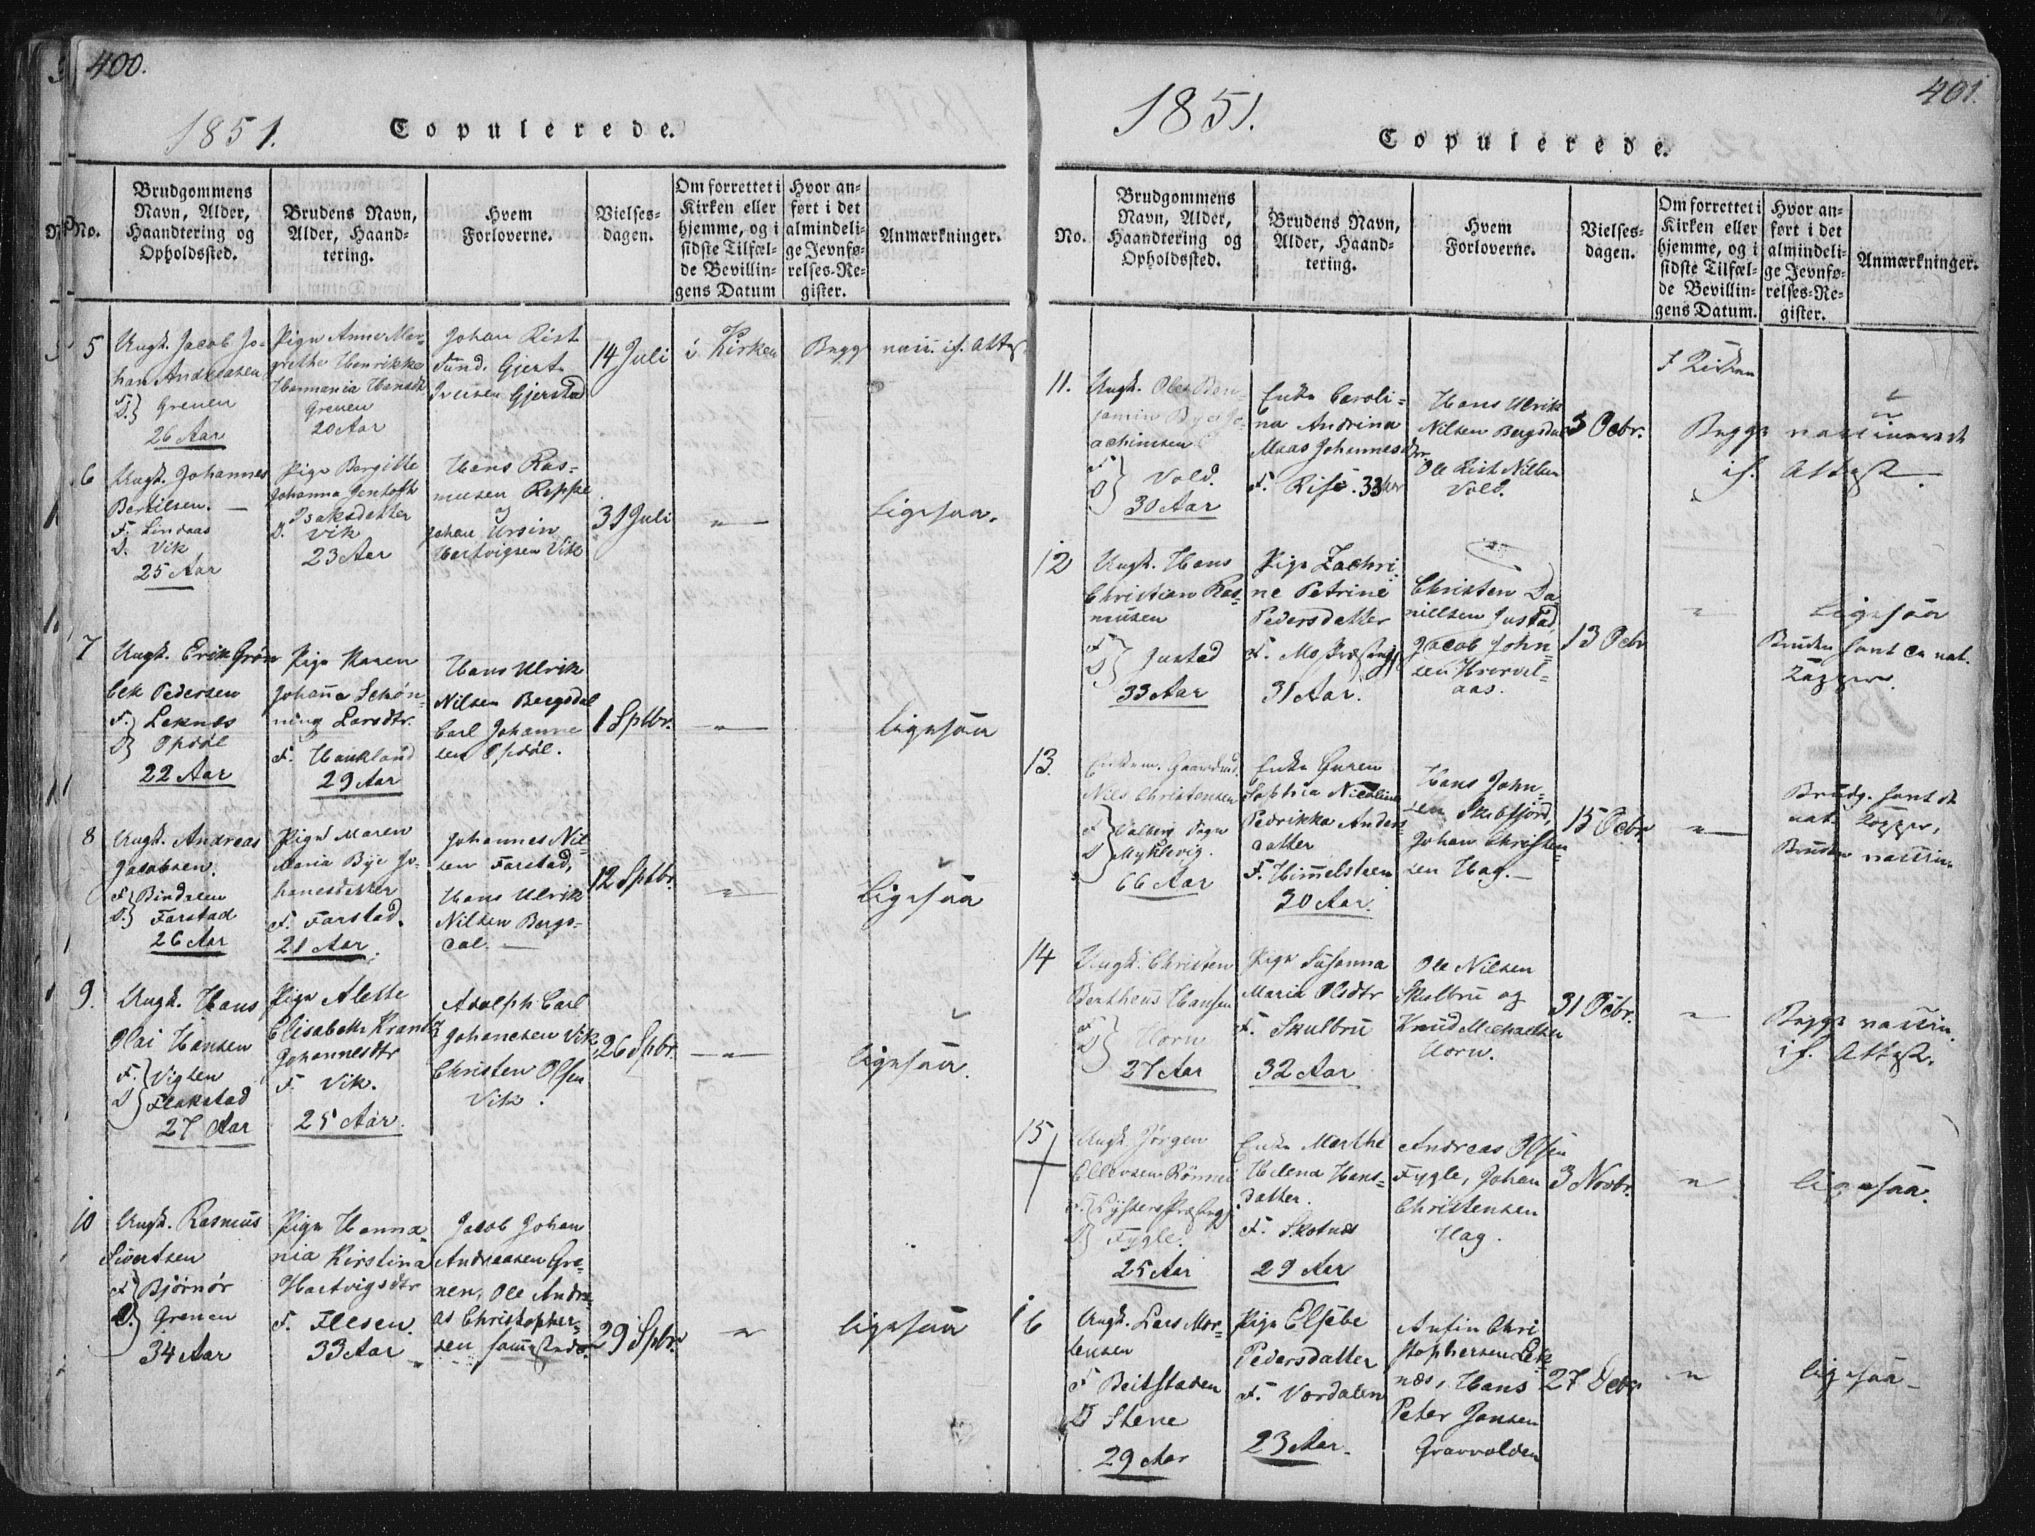 400.
1851.
Copulerede.
No.
Brudgommens
Navn, Alder,
Haandtering og
Opholdssted.
Brudens Navn,
Alder, Haand-
tering.
Hvem
Forloverne.
Vielses-
dagen.
Om forrettet i
Kirken eller
hjemme, og i
sidste Tilfæl-
de Bevillin-
gens Datum
Hvor an-
ført i det
almindeli-
ge Jevnfø-
relses-Re-
gister.
Anmærkninger.
5
Ungk. Jacob Jo-
han Andreasen
F.
D. } Grenen
26 Aar
Pige Anne Mar-
grethe Henrikke
Hermania Hansdtr
Grenen
20 Aar
Johan Rist
Sund. Gjert
Iversen Gjerstad
14 Juli
i Kirken
Begge vacc. if. Attest
6
Ungk. Johannes
Bertilsen. —
F. Lindaas
D. Vik
25 Aar
Pige Bergitte
Johanna Jentoft
Isaksdatter
D. Vik
23 Aar
Hans Ras-
musen Reppe
Johan Ursin
Hartvigsen Vik
31 Juli
— " —
Ligesaa.
7
Ungk. Erik Grøn
bek Pedersen
F. } Leknes
D } Opdøl
22 Aar
Pige Karen
Johanna Schøn-
ning Larsdtr.
F. Haukland
29 Aar
Hans Ulrik
Nilsen Bergsdal
Carl Johanne
sen Opdøl.
1 Sptbr.
— " —
Ligesaa
8
Ungk. Andreas
Jacobsen.
F } Bindalen
D. } Farstad
26 Aar
Pige Maren
Maria Bye Jo-
hanesdatter
F. Farstad.
21 Aar.
Johannes Nil-
sen Farstad,
Hans Ulrik
Nilsen Bergs-
dal. —
12 Sptbr.
— " —
Ligesaa
9.
Ungk. Hans
Olai Hansen
F. } Vigten
D } Flakstad
27 Aar
Pige Alette
Elisabeth Krantz
Johannesdtr
F. Vik.
25 Aar.
Adolph Carl
Johanesen Vik
Christen Olsen
Vik.
26 Spbr.
— " —
ligesaa.
10
Ungk. Rasmus
Sivertsen
F } Bjørnør
D. } Grenen
34 Aar
Pige Hanna-
nia Kirstina
Hartvigsdtr
F. Flesen.
33 Aar
Jacob Johan
Andreasen Gre-
nen, Ole Andre-
as Christopher-
sen sammesteds.
29 Spbr
— " —
ligesaa
401.
1851.
Copulerede.
No.
Brudgommens
Navn, Alder,
Haandtering og
Opholdssted.
Brudens Navn,
Alder, Haand-
tering.
Hvem
Forloverne.
Vielses-
dagen.
Om forrettet i
Kirken eller
hjemme, og i
sidste Tilfæl-
de Bevillin-
gens Datum.
Hvor an-
ført i det
almindeli-
ge Jevnfø-
relses-Re-
gister.
Anmærkninger.
11.
Ungk. Ole Ben-
jamin Bye Jo-
achimsen
F
D } Vold.
30 Aar
Enke Caroli-
na Andrina
Maas Johannesdtr.
F. Risø. 33 Aar
Hans Ulrik
Nilsen Bergsdal
Ole Rist Nilsen
Vold.
5 Octbr.
I Kirken
Begge vaccinerede
if. Attest.
12
Ungk. Hans
Christian Ras-
musen
F
D } Justad
33 Aar
Pige Zachri-
ne Petrine
Pedersdatter
F. Mo Præstegj
31 Aar.
Christen Da
nielsen Justad,
Jacob John-
sen
13 Octbr
"
Ligesaa
Bruden havt de nat.
Kopper.
13.
Enkem. Gaardmd.
Nils Christensen
F } Valberg Sogn
D } Myklevig.
66 Aar
Enke Guren
Sophia Nicoline
Pedrikka Anders-
datter
F. Himmelsteen
30 Aar.
Hans John-
sen Skotfjord,
Johan Christen-
sen Hag. —
15 Octbr
— " —
Brudg. havt de
nat. Kopper,
Bruden vaccin.
14
Ungk. Christen
Bertheus Hansen
F
D } Uorn
27 Aar
Pige Susanna
Maria Olsdtr
F. Skulbru
32 Aar
Ole Nilsen
Skulbru og
Knud Michaelsen
Uorn.
31 Octbr.
"
Begge vaccin.
if. Attest.
15
Ungk. Jørgen
Ellevsen Rønnei
F. } Lysters Præstegj
D } Fygle.
25 Aar
Enke Marthe
Helena Hans-
datter.
F. Skotnes
29 Aar
Andreas Olsen
Fygle, Johan
Christensen
Hag.
3 Novbr.
"
ligesaa.
16
Ungk. Lars Mor-
tensen
F Beitstaden
D Stene
29 Aar
Pige Elsebe
Pedersdatter
F. Vordalen
23 Aar.
Anfin Chri
stophersen Lek-
næs, Hans
Peter Jansen
Gravvolden
27 Decbr
"
ligesaa —